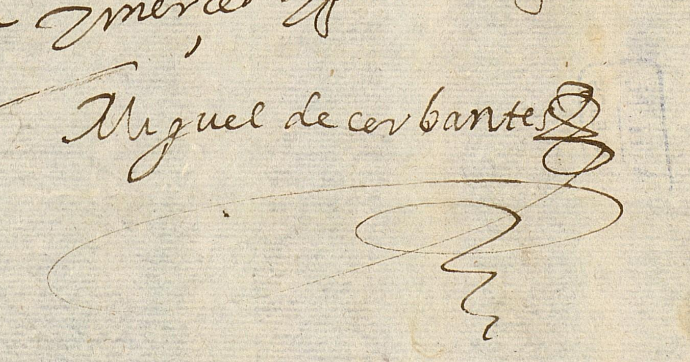 merced
Miguel de cerbantes